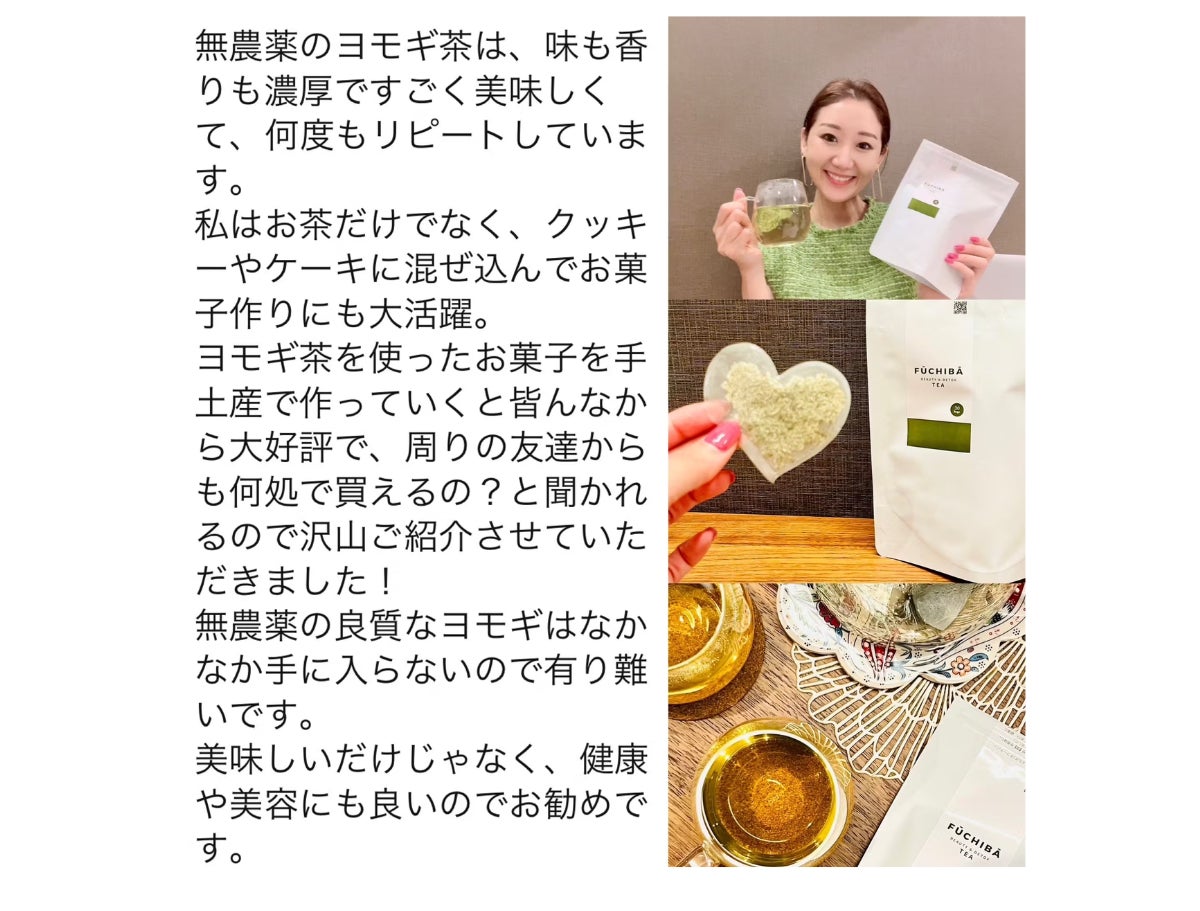 無農薬のヨモギ茶は、味も香
りも濃厚ですごく美味しく
て、何度もリピートしていま
す。
私はお茶だけでなく、クッキ
ーやケーキに混ぜ込んでお菓
子作りにも大活躍。
ヨモギ茶を使ったお菓子を手
土産で作っていくと皆んなか
ら大好評で、周りの友達から
も何処で買えるの？と聞かれ
るので沢山ご紹介させていた
だきました！
無農薬の良質なヨモギはなか
なか手に入らないので有り難
いです。
美味しいだけじゃなく、健康
や美容にも良いのでお勧めで
す。
FŪCHIBĀ
BEAUTY & DETOX
TEA
FŪCHIBĀ
BEAUTY & DETOX
TEA